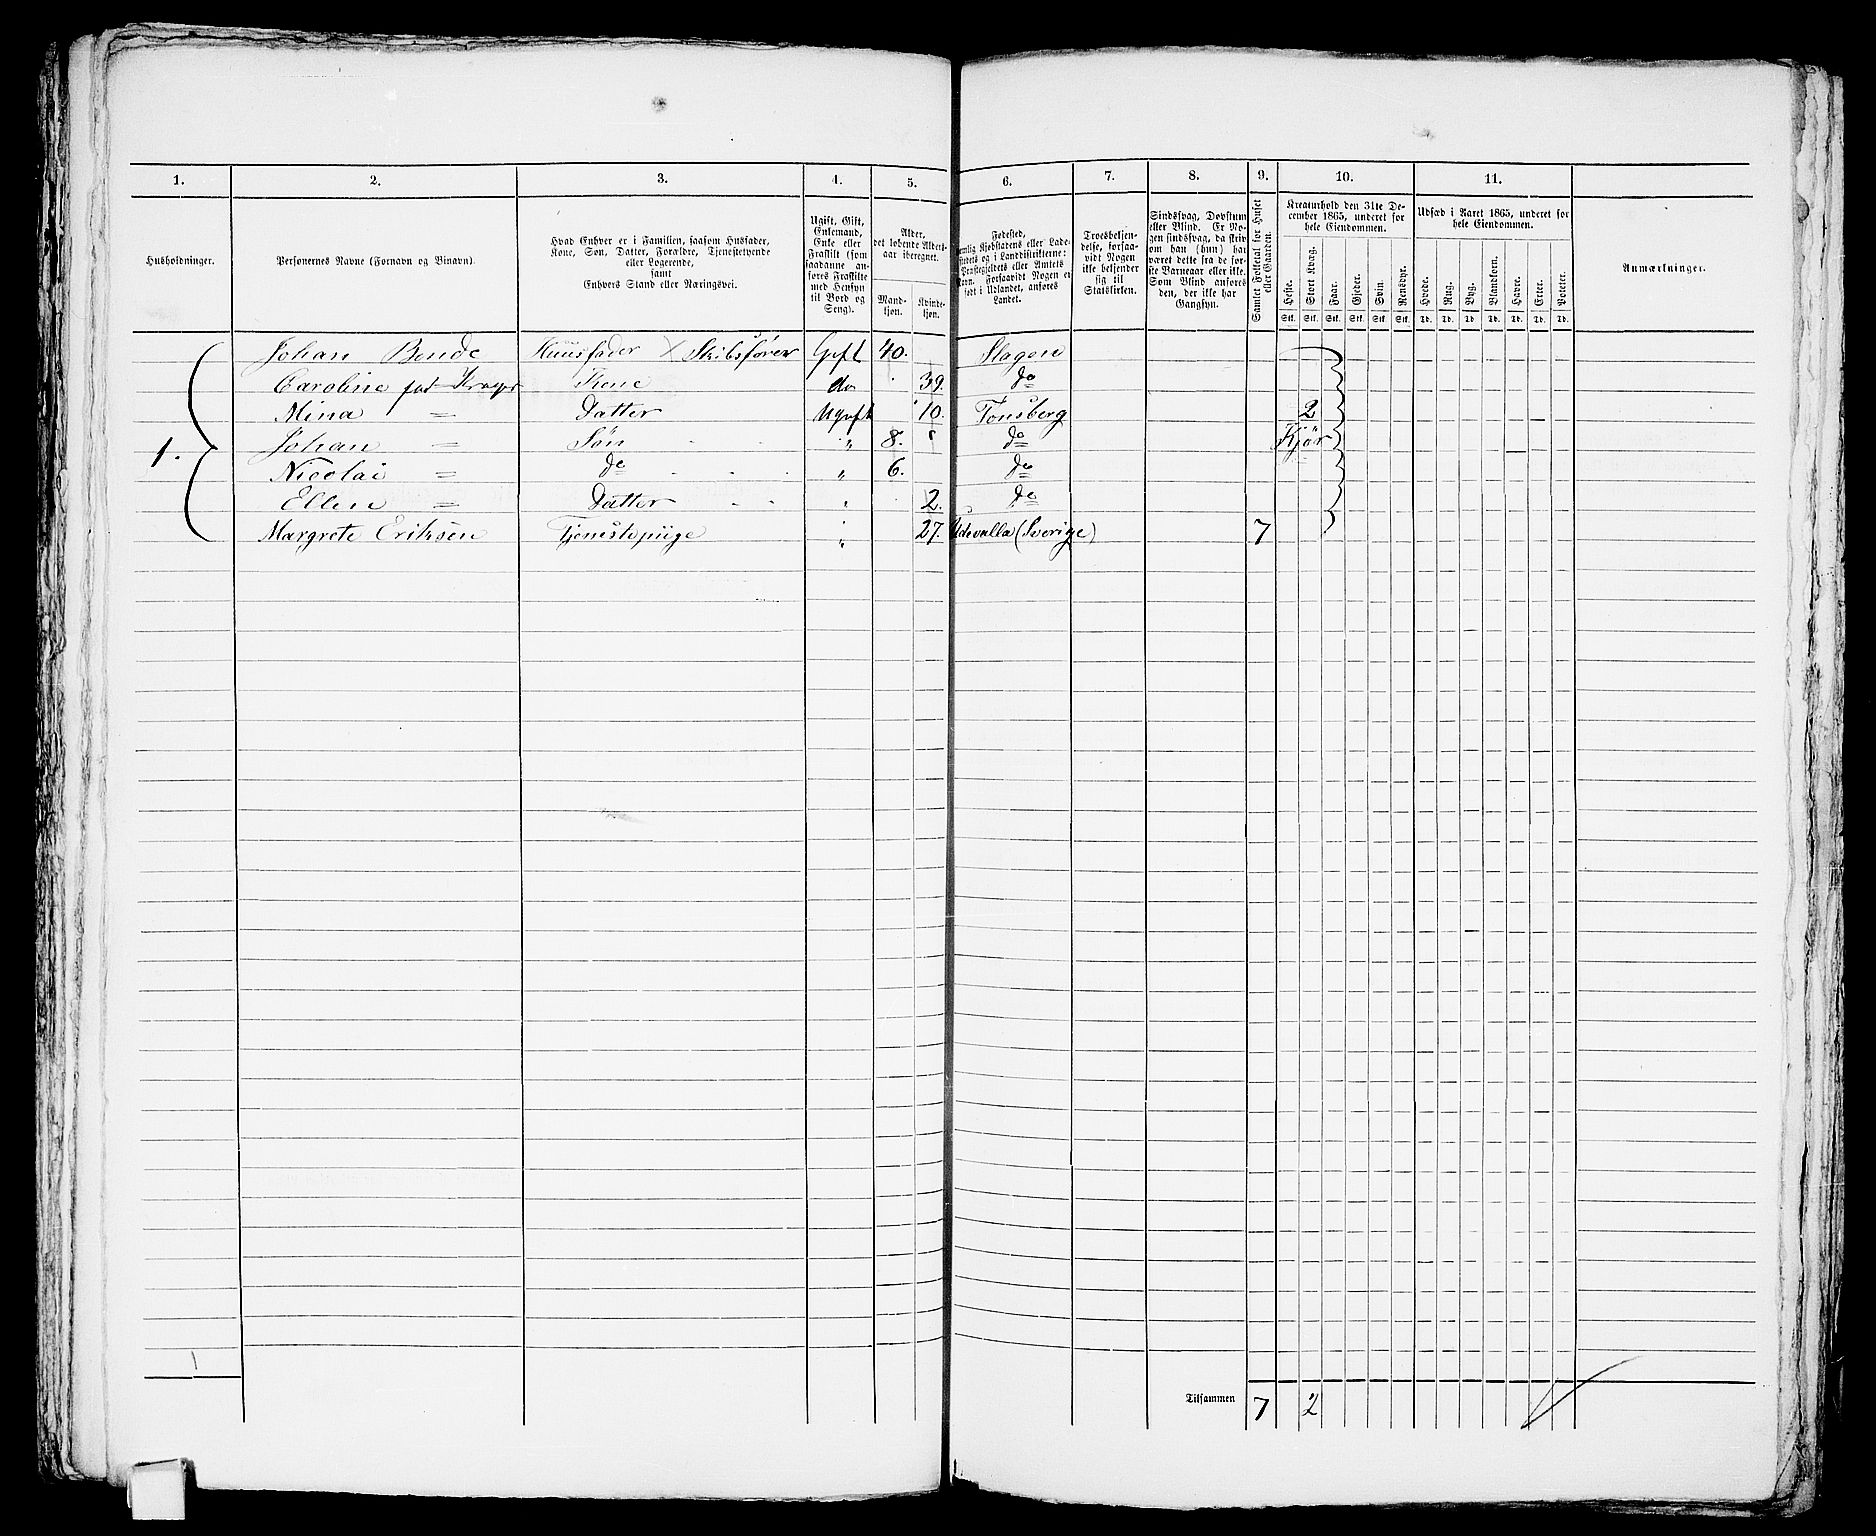 1. 2. 3. 4. 5. 6. 7. 8. 9. 10. 11.
Husholdninger.
Personernes Navne (Fornavn og Binavn).
Hvad Enhver er i Familien, saasom Husfader,
Kone, Søn, Datter, Forældre, Tjenestetyende
eller Logerende,
samt
Enhvers Stand eller Næringsvei.
Ugift, Gift,
Enkemand,
Enke eller
Fraskilt (som
saadanne an-
føres Fraskilte
med Hensyn
til Bord og
Seng).
Alder,
det løbende Alders-
aar iberegnet.
Mand-
kjøn.
Kvinde-
kjøn.
Fødested,
Troesbekjen-
delse, forsaa-
vidt Nogen
ikke bekjender
sig til
Statskirken.
Sindssvag, Døvstum
eller Blind. Er No-
gen sindssvag, da skriv
om han (hun) har
været dette fra de før-
ste Barneaar eller ikke.
Som Blind anføres
den, der ikke har
Gangsyn.
Samlet Folketal for Huset
eller Gaarden.
Kreaturhold den 31te De-
cember 1865, underet for
hele Eiendommen.
Heste. Stort Kvæg. Faar. Gjeder. Svin. Rensdyr.
Stk. Stk. Stk. Stk. Stk. Stk.
Udsæd i Aaret 1865, underet for
hele Eiendommen.
Hvede. Rug. Byg. Blandkorn. Havre. Erter. Poteter.
Td. Td. Td. Td. Td. Td. Td.
Anmærkninger.
1.
Johan Bende Huusfader X Skibsfører Gift 40. Slagen
Caroline Kone do 39. do
Mina = Datter Ugift 10. Tønsberg 2
Johan = Søn " 8. do Kjør
Nicolai = do " 6. do
Ellen = Datter " 2. do
Margrete Eriksen Tjenestepiige " 27. Udevalla (Sverige) 7
1
Tilsammen 7 2